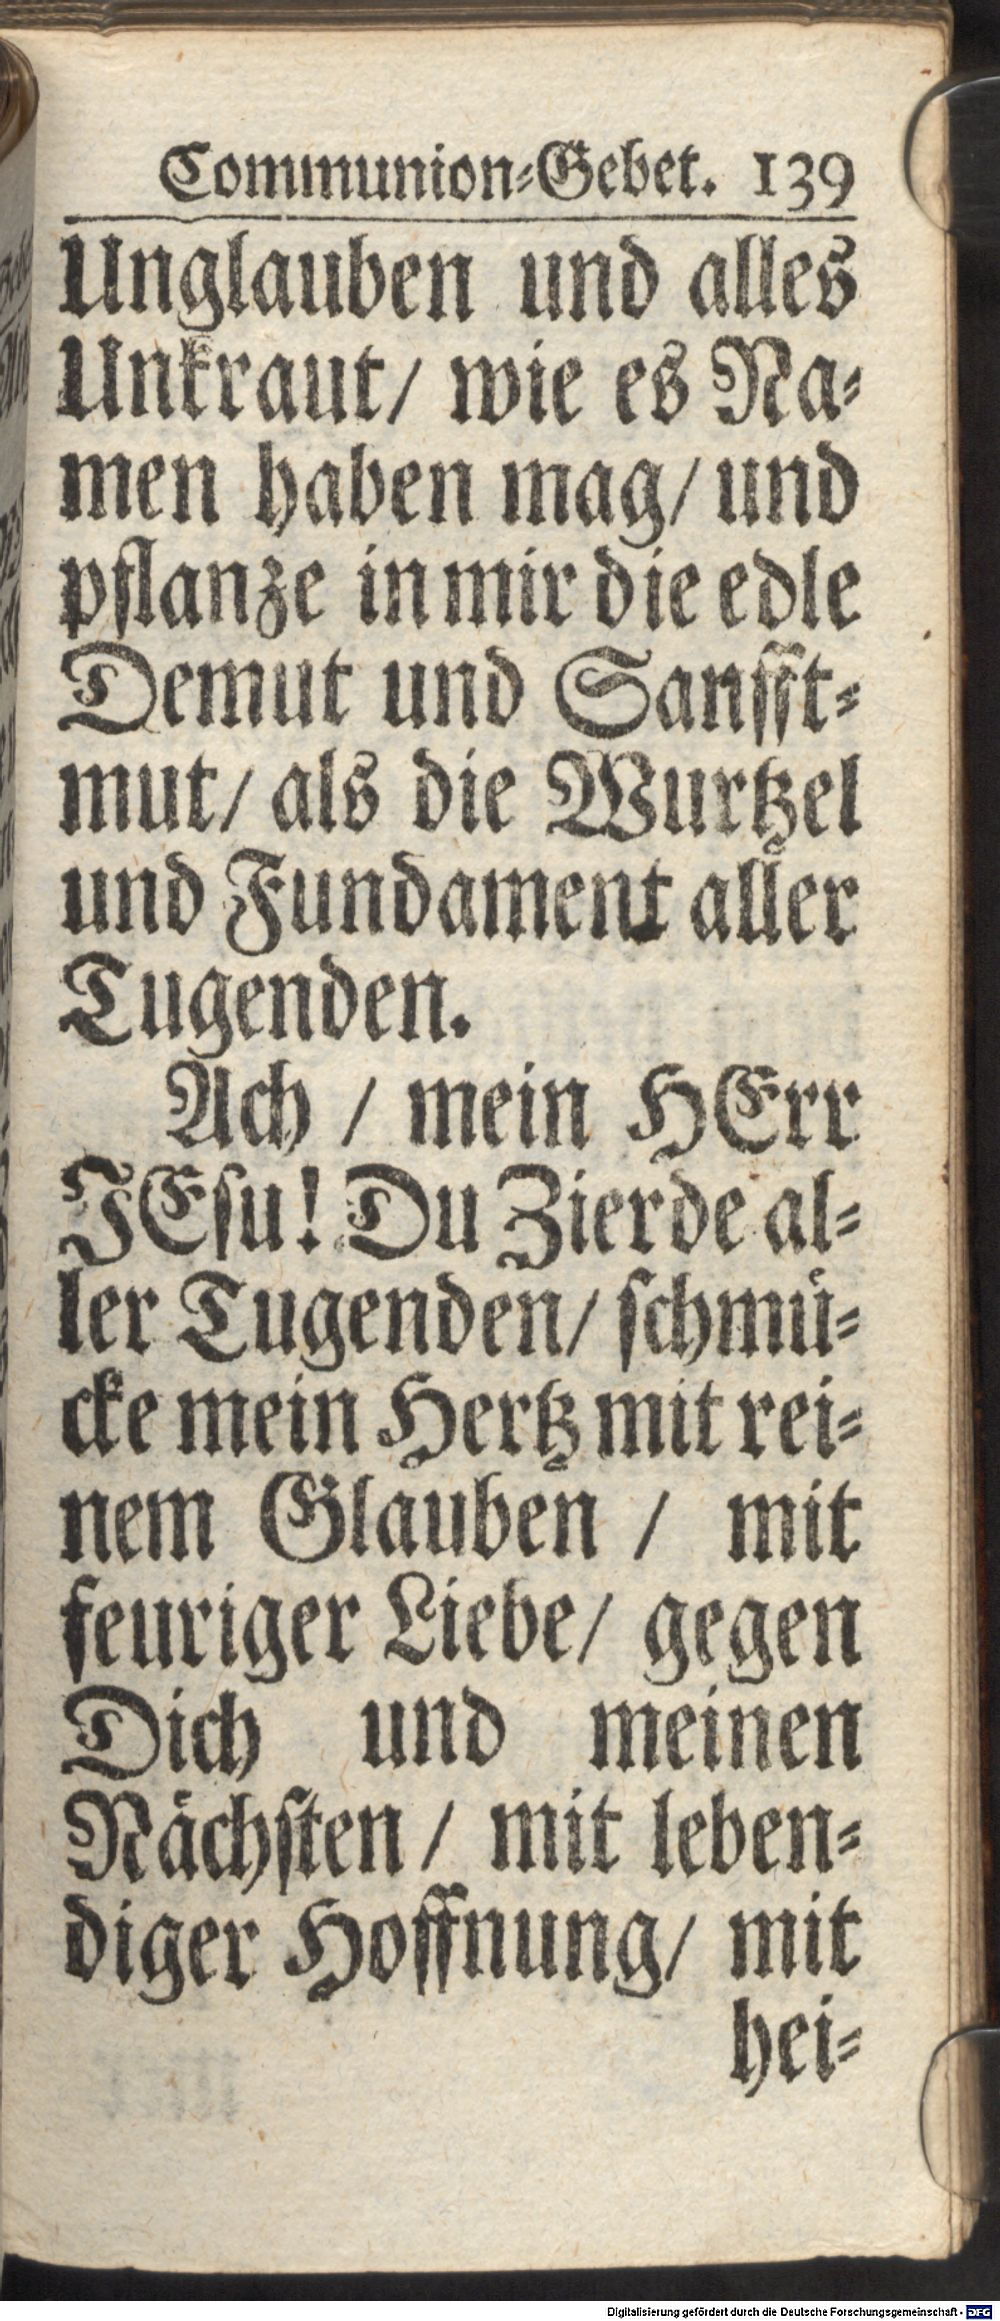 Communion-Gebet. 139
Unglauben und alles
Unkraut/ wie es Na-
men haben mag/ und
pflanze in mir die edle
Demut und Sanfft-
mut/ als die Wurtzel
und Fundament aller
Tugenden.
Ach / mein HErr
JEsu! Du Zierde al-
ler Tugenden/ schmü-
cke mein Hertz mit rei-
nem Glauben / mit
feuriger Liebe/ gegen
Dich und meinen
Nächsten / mit leben-
diger Hoffnung/ mit
hei-
Digitalisierung gefördert durch die Deutsche Forschungsgemeinschaft - DFG